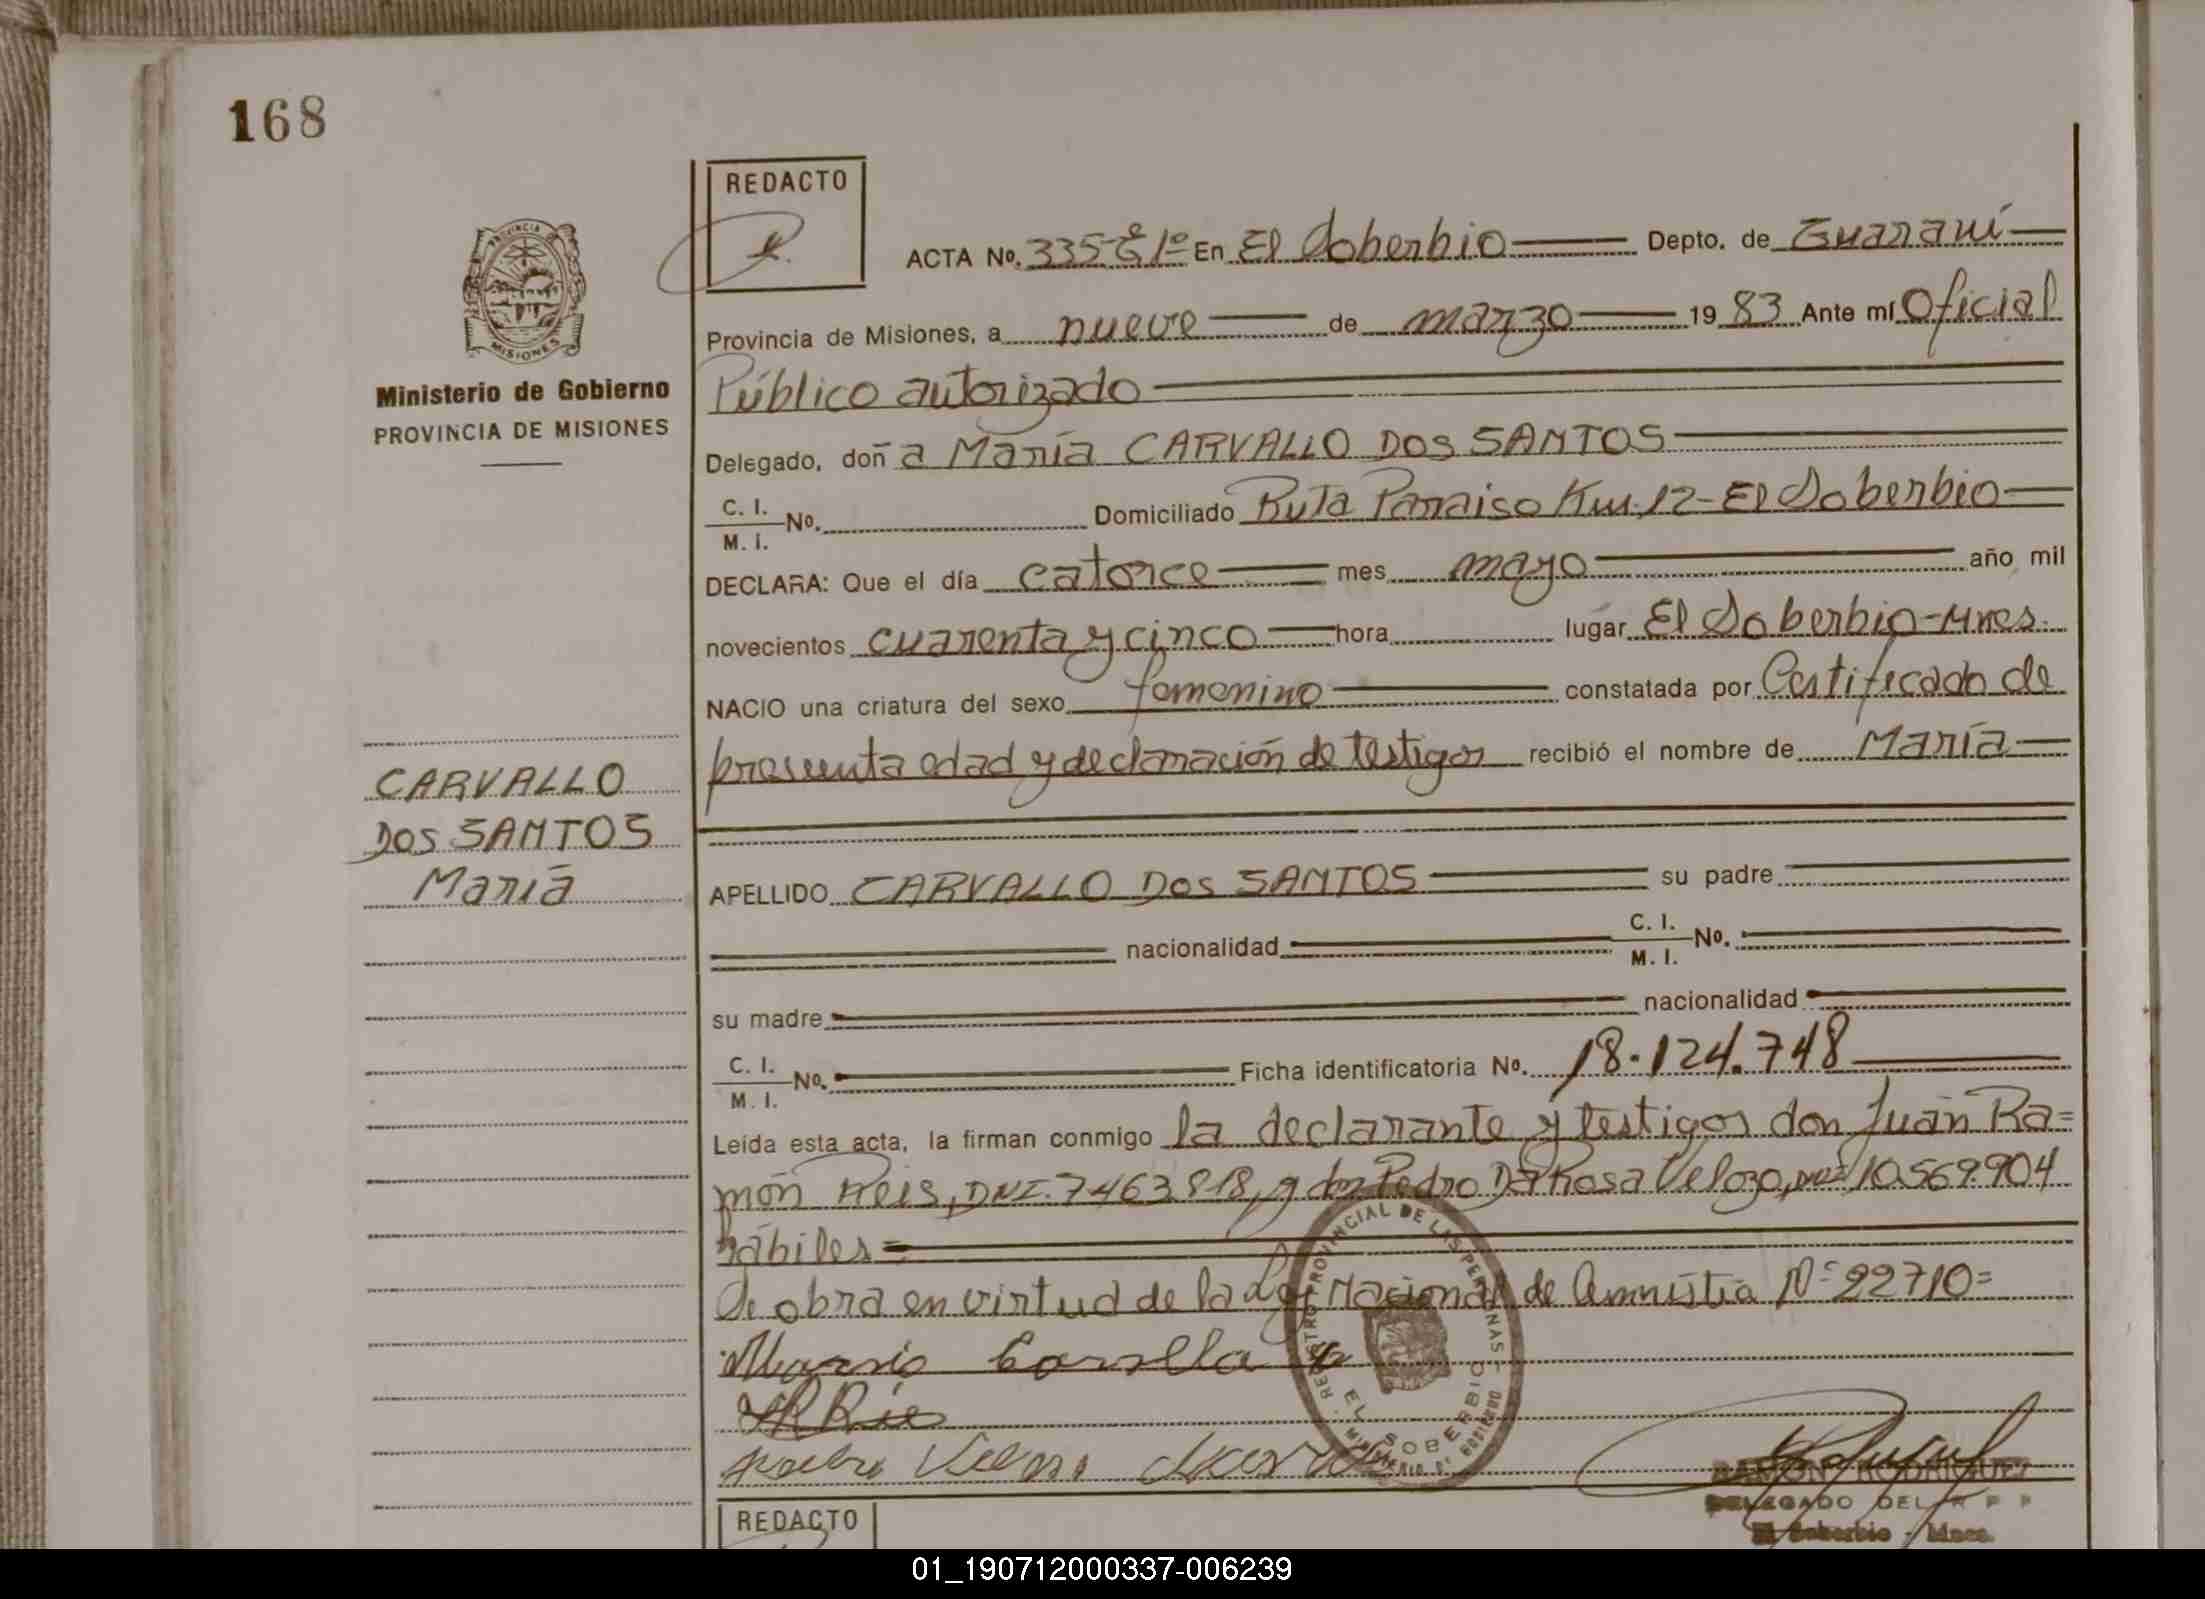 168
REDACTO
PROVINCIA DE
MISIONES
Ministerio de Gobierno
PROVINCIA DE MISIONES
ACTA No. 335 1º En El Soberbio Depto. de Guaraní
Provincia de Misiones, a nueve de marzo 19 83 Ante mí Oficial
Público autorizado
Delegado, doña María CARVALLO DOS SANTOS
C. I.
M. I. No. Domiciliado Ruta Paraiso Km. 12 - El Soberbio
DECLARA: Que el día catorce mes mayo año mil
novecientos cuarenta y cinco hora lugar El Soberbio - Mnes.
NACIO una criatura del sexo femenino constatada por Certificado de
presunta edad y declaración de testigos recibió el nombre de María
CARVALLO
DOS SANTOS
María
APELLIDO CARVALLO DOS SANTOS su padre
nacionalidad C. I.
M. I. No.
su madre nacionalidad
C. I.
M. I. No. Ficha identificatoria No. 18.124.748
Leída esta acta, la firman conmigo la declarante y testigos don Juan Ra=
món Reis, DNI. 7463.818, y don Pedro Da Rosa Velozo, DNI 10.569.904
hábiles =
Se obra en virtud de la Ley Nacional de Amnistia Nº 22710=
REGISTRO PROVINCIAL DE LAS PERSONAS
EL SOBERBIO
MINISTERIO DE GOBIERNO
RAMON RODRIGUEZ
DELEGADO DEL R P P
El Soberbio - Mnes.
REDACTO
01_190712000337-006239